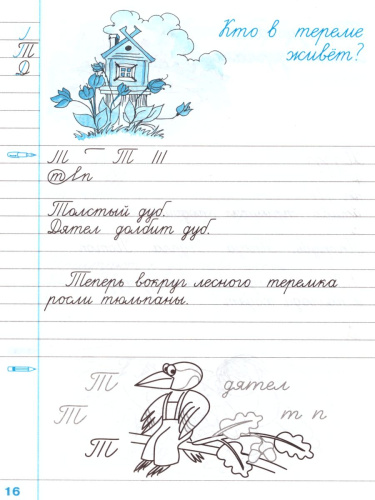 Кто в тереме
живёт?
Т
Д
Ш Т Ш
т л п
Толстый дуб.
Дятел долбит дуб.
Теперь вокруг лесного теремка
росли тюльпаны.
Т дятел
Т т п
Т
16